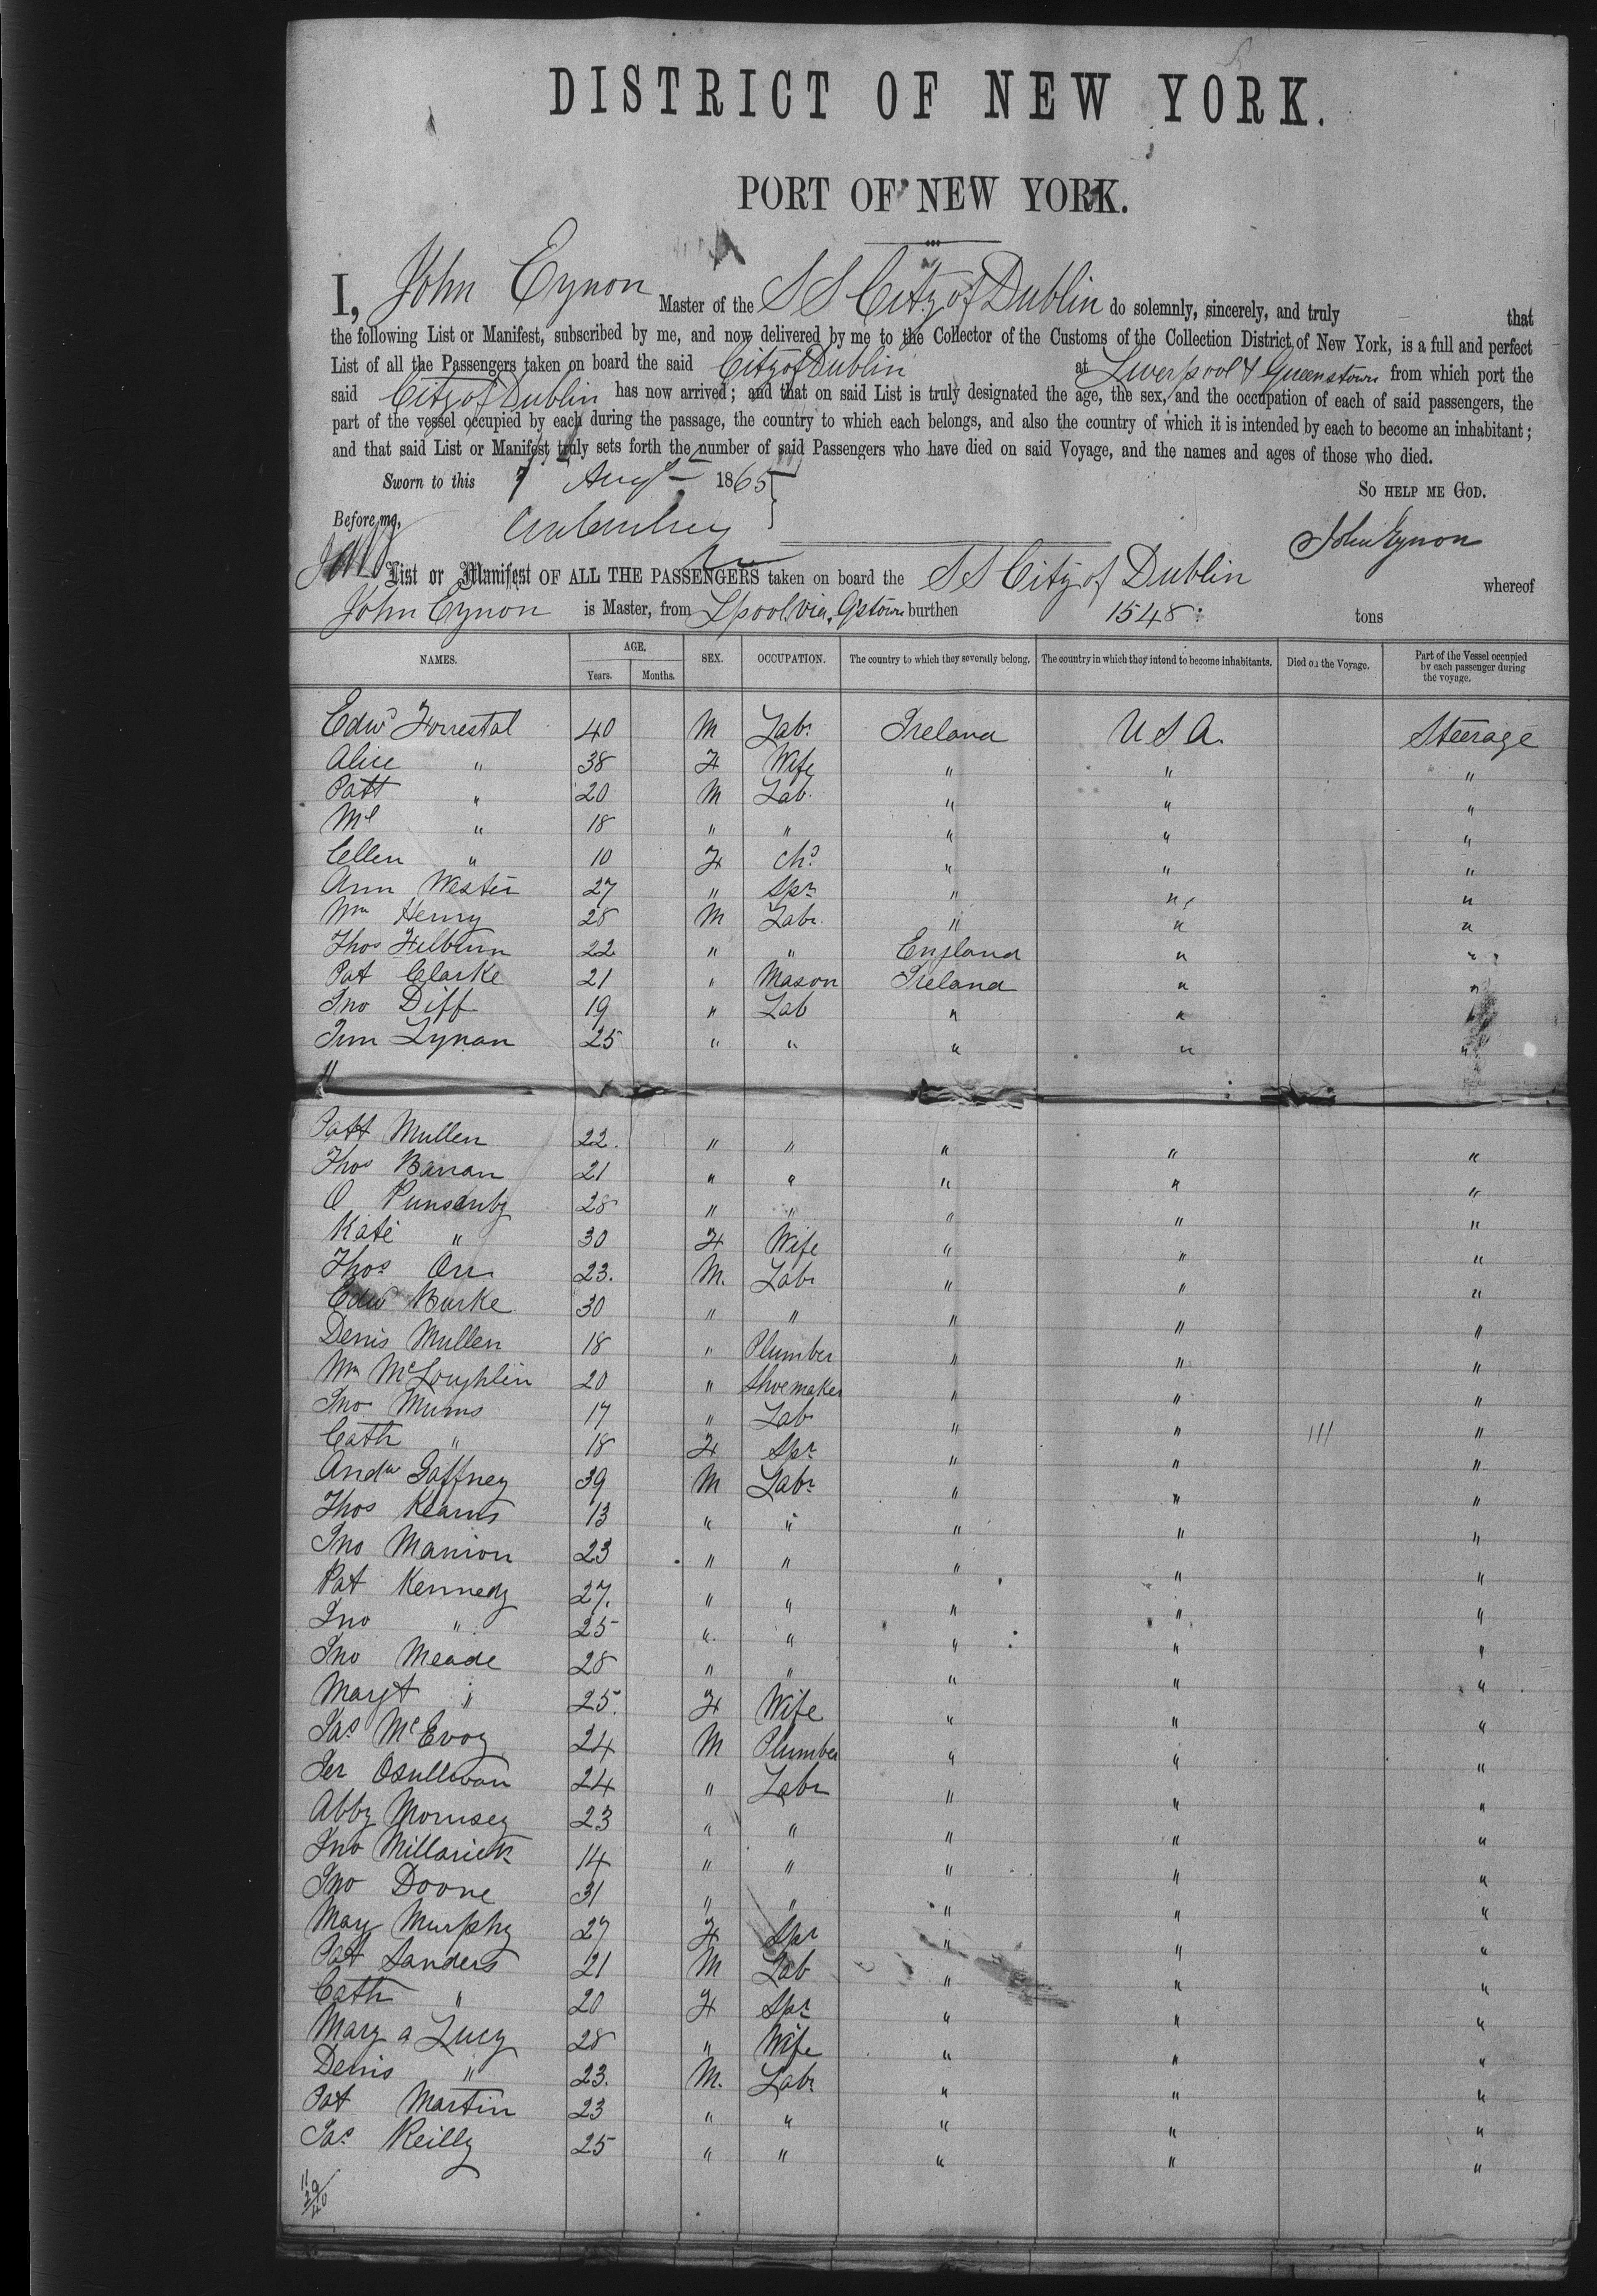 DISTRICT OF NEW YORK.
PORT OF NEW YORK.
I, John Eynon Master of the SS City of Dublin do solemnly, sincerely, and truly that
the following List or Manifest, subscribed by me, and now delivered by me to the Collector of the Customs of the Collection District of New York, is a full and perfect
List of all the Passengers taken on board the said City of Dublin at Liverpool & Queenstown from which port the
said City of Dublin has now arrived; and that on said List is truly designated the age, the sex, and the occupation of each of said passengers, the
part of the vessel occupied by each during the passage, the country to which each belongs, and also the country of which it is intended by each to become an inhabitant;
and that said List or Manifest truly sets forth the number of said Passengers who have died on said Voyage, and the names and ages of those who died.
Sworn to this 7 Augt 1865
SO HELP ME GOD.
Before me,
John Eynon
List or Manifest OF ALL THE PASSENGERS taken on board the SS City of Dublin whereof
John Eynon is Master, from Lpool via Qstown burthen 1548 tons
NAMES. AGE. Years. Months. SEX. OCCUPATION. The country to which they severally belong. The country in which they intend to become inhabitants. Died on the Voyage. Part of the Vessel occupied by each passenger during the voyage.
Edwd Forrestal 40 M Labr Ireland U S A. Steerage
Alice " 38 F Wife " " "
Patt " 20 M Lab. " " "
Ml " 18 " " " " "
Ellen " 10 F Chd " " "
Ann Waster 27 " Spr " " "
Wm Henry 28 M Labr " " "
Thos Filburn 22 " " England " "
Pat Clarke 21 " Mason Ireland " "
Jno Diff 19 " Lab " "
Tim Lynan 25 " " " " "
11
Patt Mullen 22. " " " " "
Thos Barran 21 " " " " "
O Punsenby 28 " " " " "
Kate " 30 F Wife " " "
Thos Orr 23. M. Labr " " "
Edwd Burke 30 " " " " "
Denis Mullen 18 " Plumber " " "
Wm McLoughlin 20 " Shoemaker " " "
Jno Mums 17 " Lab " " "
Cath " 18 F Spr " " "
Andw Gaffney 39 M Labr " " "
Thos Kearns 13 " " " " "
Jno Manion 23 " " " " "
Pat Kennedy 27. " " " " "
Jno " 25 " " " " "
Jno Meade 28 " " " " "
Margt " 25. F Wife " " "
Jas McEvoy 24 M Plumber " " "
Jer OSullivan 24 " Labr " " "
Abby Morrisey 23 " " " " "
Jno Millarick 14 " " " " "
Jno Doone 31 " " " " "
Mary Murphy 27 F Spr " " "
Patt Sanders 21 M Lab " " "
Cath " 20 F Spr " " "
Mary a Lucy 28 " Wife " " "
Denis " 23. M. Labr " " "
Pat Martin 23 " " " " "
Jas Reilly 25 " " " " "
11
29
40